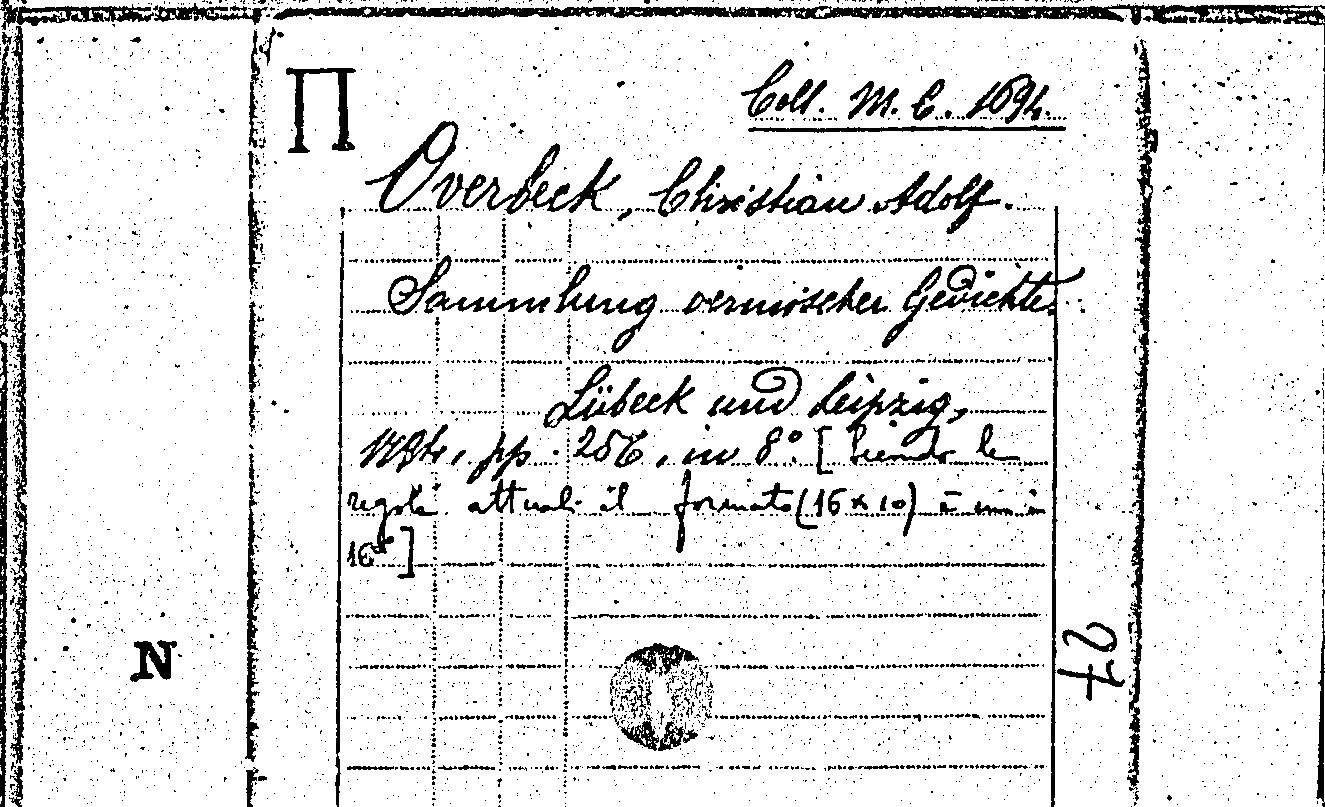 Π
Coll. M. C. 1694.
Overbeck, Christian Adolf.
Sammlung vermischter Gedichte.
Lübeck und Leipzig,
1794, pp. 256, in 8° [
regole attuali il formato (16 x 10) è un in
16°]
N
27